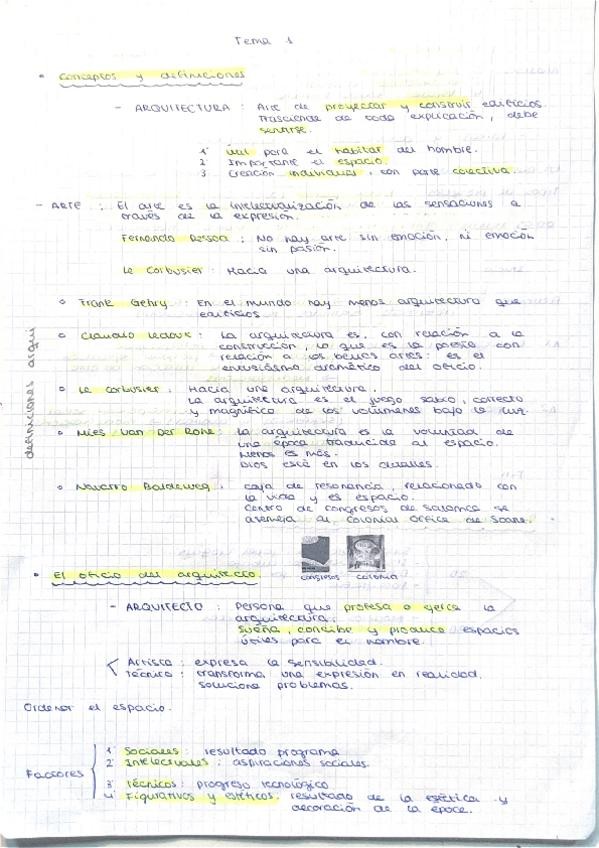 Tema 1
• Conceptos y definiciones
- ARQUITECTURA : Arte de proyectar y construir edificios.
Trasciende de toda explicación, debe
sentirse.
1 Útil para el habitar del hombre.
2 Importante el espacio.
3 Creación individual, con parte colectiva.
- ARTE : El arte es la intelectualización de las sensaciones a
través de la expresión.
Fernando Pessoa : No hay arte sin emoción, ni emoción
sin pasión.
Le Corbusier : Hacia una arquitectura.
definiciones arqui
o Frank Gehry : En el mundo hay menos arquitectura que
edificios
o Claudio Ledoux : La arquitectura es, con relación a la
construcción, lo que es la poesía con
relación a las bellas artes : es el
entusiasmo dramático del oficio.
o Le Corbusier : Hacia una arquitectura.
La arquitectura es el juego sabio, correcto
y magnífico de los volúmenes bajo la luz.
o Mies Van Der Rohe : la arquitectura es la voluntad de
una época traducida al espacio.
Menos es más.
Dios está en los detalles.
o Navarro Baldeweg : caja de resonancia, relacionado con
la vida y es espacio.
Centro de congresos de Salamca se
asemeja al colonial office de Soane.
congresos colonia
• El oficio del arquitecto
- ARQUITECTO : Persona que profesa o ejerce la
arquitectura.
Sueña, concibe y produce espacios
útiles para el hombre.
Artista : expresa la sensibilidad.
Técnico : transforma una expresión en realidad.
soluciona problemas.
Ordenar el espacio.
Factores
1 Sociales : resultado programa
2 Intelectuales : aspiraciones sociales.
3 Técnicos : progreso tecnológico
4 Figurativos y estéticos : resultado de la estética y
decoración de la época.